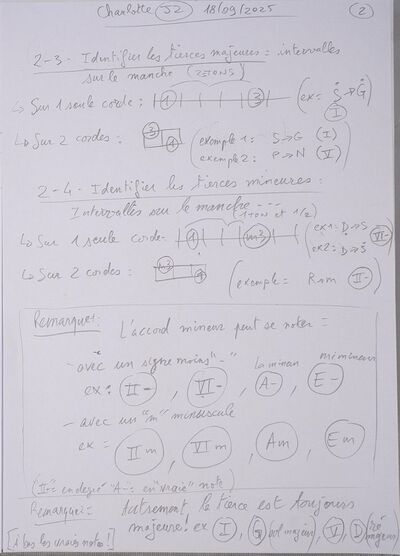 Charlotte S2 18/09/2025 2
2-3- Identifier les tierces majeures = intervalles
sur le manche (2 TONS)
↳ Sur 1 seule corde : 1 3 (ex = S → G I)
↳ Sur 2 cordes : 3 1 (exemple 1 : S → G (I)
exemple 2 : P → N (V))
2-4- Identifier les tierces mineures.
Intervalles sur le manche --- (1 TON et 1/2)
↳ Sur 1 seule corde- 1 m3 (ex 1 = D → S
ex 2 = D → S VII-)
↳ Sur 2 cordes : m3 1 (exemple = R → m II-)
Remarque : L'accord mineur peut se noter =
- avec un signe moins "-" la mineur mi mineur
ex : II- , VI- , A- , E-
- avec un "m" minuscule
ex = IIm , VIm , Am , Em
(II- = en degré "A- = en "vraie" note)
Remarque : Autrement, la tierce est toujours
majeure ! ex I , G (sol majeur) , V , D (ré majeur)
[À bas les vraies notes !]